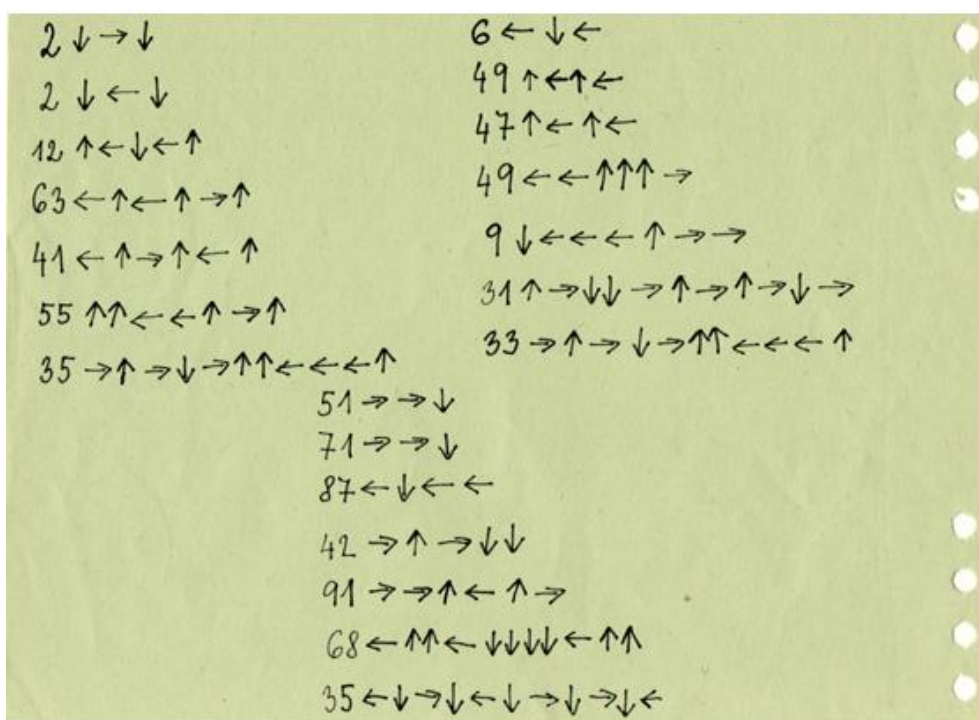 2 ↓→↓
2 ↓←↓
12 ↑←↓←↑
63 ←↑←↑→↑
41 ←↑→↑←↑
55 ↑↑←←↑→↑
35 →↑→↓→↑↑←←←↑
6 ←↓←
49 ↑←↑←
47 ↑←↑←
49 ←←↑↑↑→
9 ↓←←←↑→→
31 ↑→↓↓→↑→↑→↓→
33 →↑→↓→↑↑←←←↑
51 →→↓
71 →→↓
87 ←↓←←
42 →↑→↓↓
91 →→↑←↑→
68 ←↑↑←↓↓↓↓←↑↑
35 ←↓→↓←↓→↓→↓←